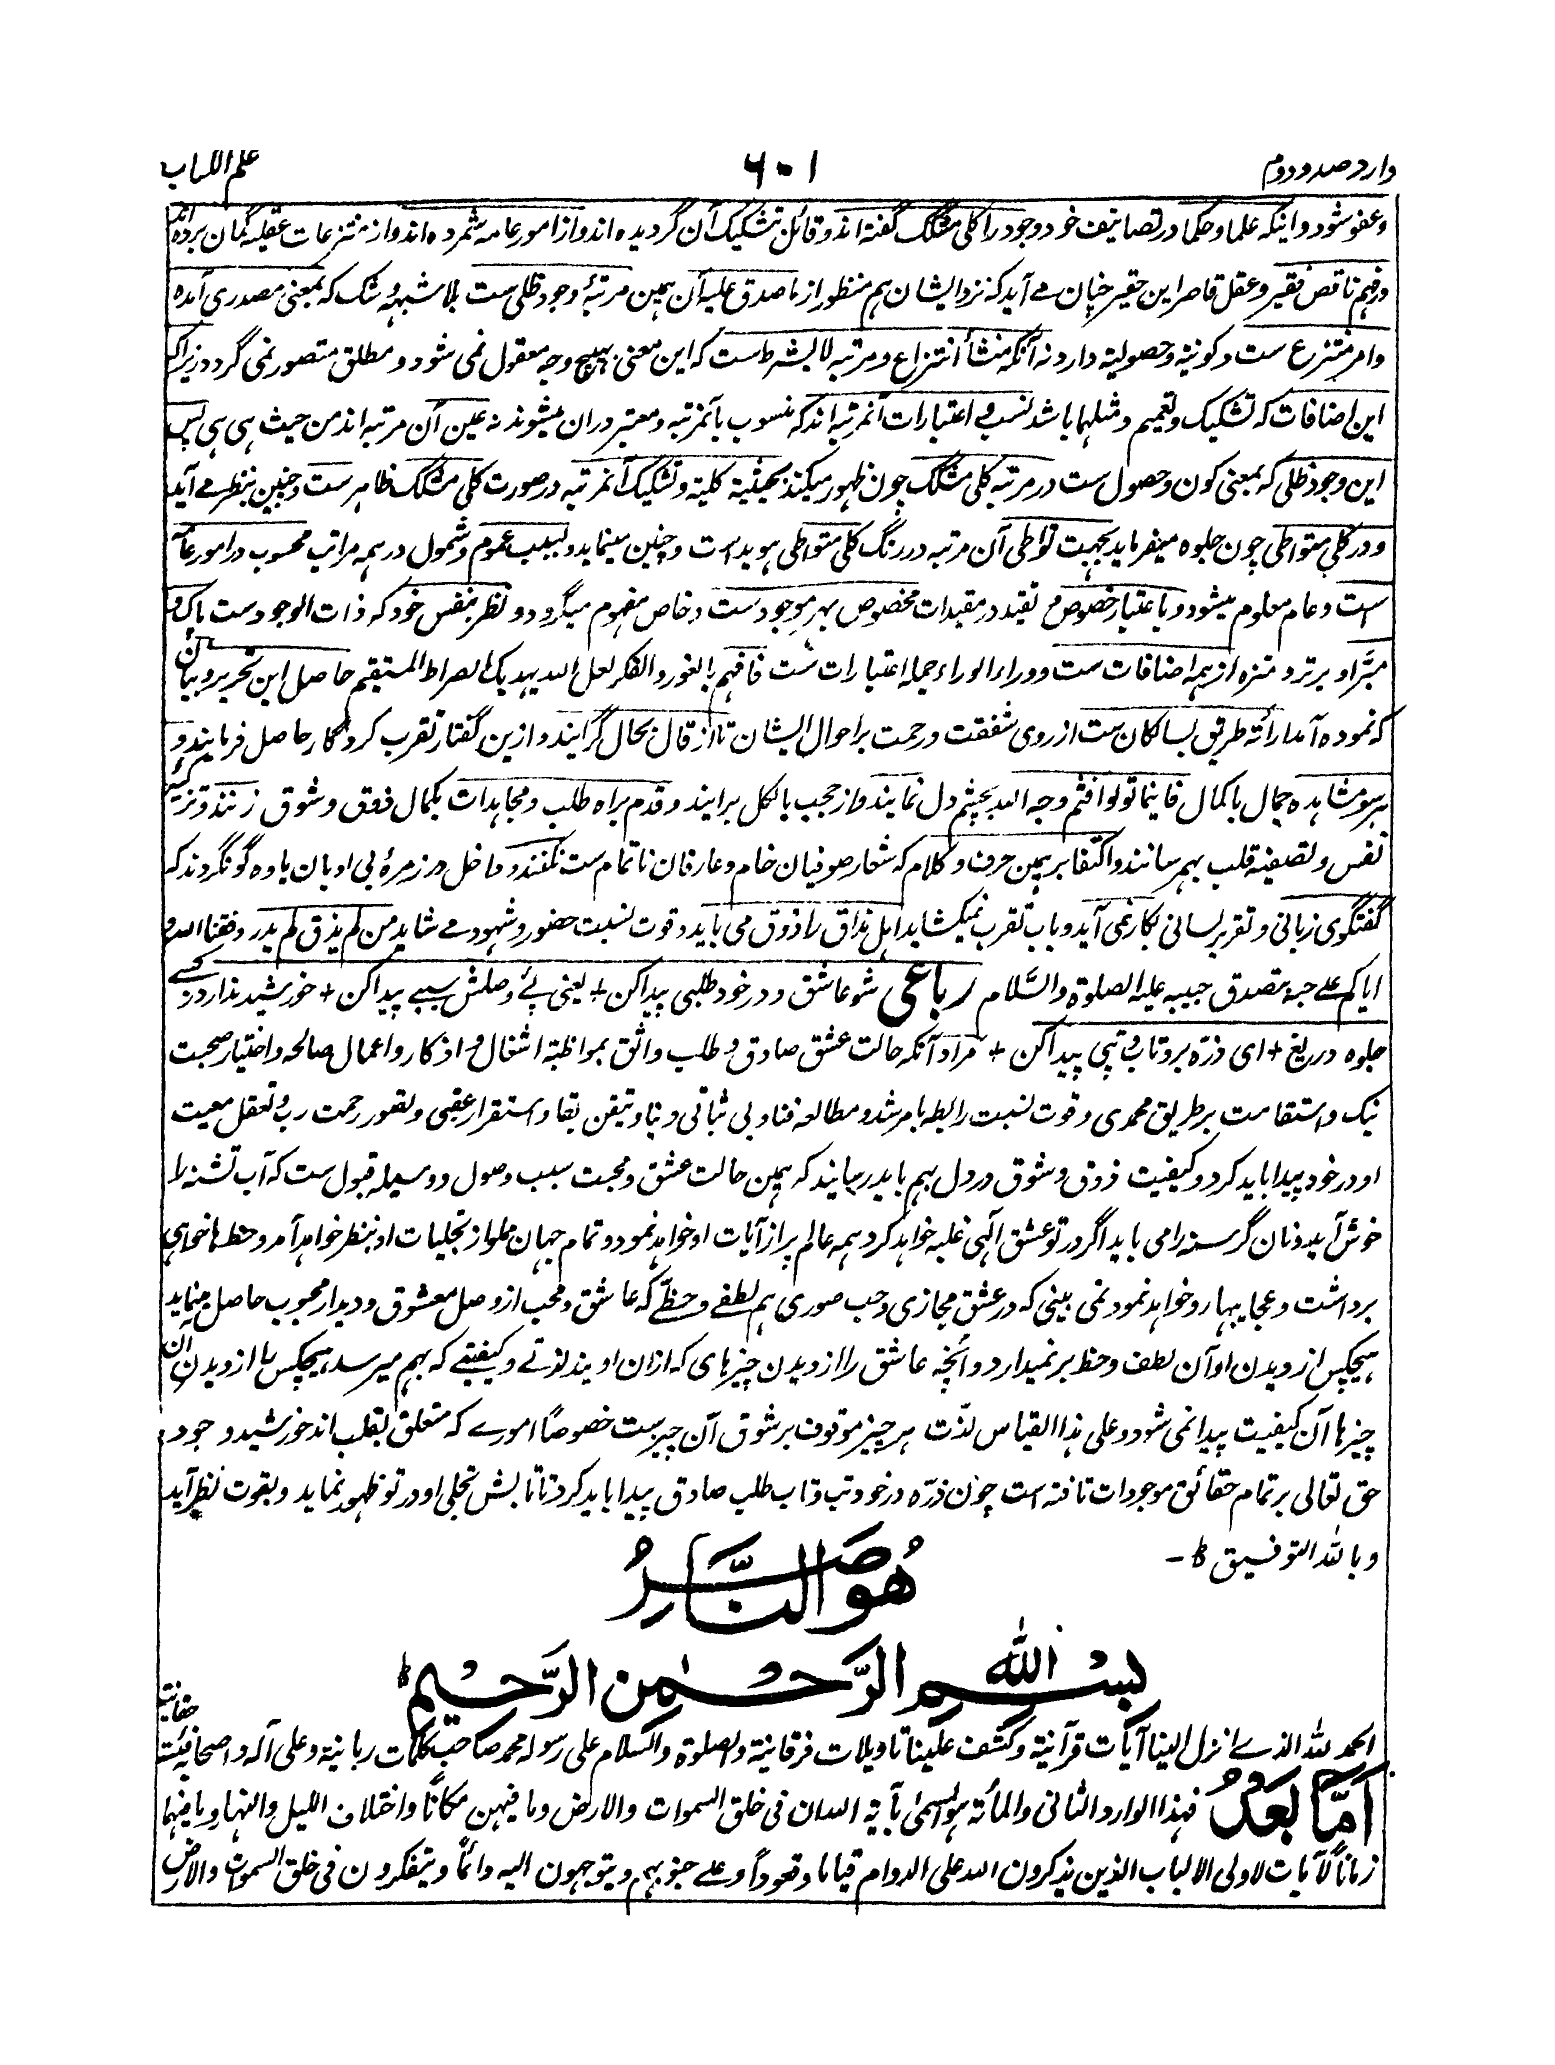 وارد صد و دوم ۶۰۱ علم الکتاب
و عفو شود و اینکه علما و حکما در تصانیف خود وجود را کلی مشکک گفته اند و قائل تشکیک آن گردیده اند و از امور عامه شمرده اند و از منتزعات عقلیه گمان برده اند
در فهم ناقص فقیر و عقل قاصر این حقیر چنان مے آید کہ نزد ایشان ہم منظور از ما صدق علیہ آن ہمین مرتبۂ وجود ظلی ست بلا شبہہ و شک کہ بمعنی مصدری آمدہ
و امر منتزع ست و کونیتہ و حصولیتہ دارد نہ آنکہ منشأ انتزاع و مرتبہ لا بشرط ست کہ این معنی بہیچ وجہ معقول نمی شود و مطلق متصور نمی گردد زیراکہ
این اضافات کہ تشکیک و تعمیم و مثلہا باشد نسب و اعتبارات آنمرتبہ اند کہ منسوب بآنمرتبہ و معتبر دران میشوند نہ عین آن مرتبہ اند من حیث ہی ہی پس
این وجود ظلی کہ بمعنی کون و حصول ست در مرتبہ کلی مشکک چون ظہور میکند بحیثیتہ کلیتہ و تشکیک آنمرتبہ در صورت کلی مشکک ظاہر ست و چنین بنظر مے آید
و در کلی متواطی چون جلوہ میفرماید بجہت تواطی آن مرتبہ در رنگ کلی متواطی ہویداست و چنین مینماید و بسبب عموم و شمول در ہمہ مراتب محسوب در امور عامہ
است و عام معلوم میشود و باعتبار خصوص و تقید در مقیدات مخصوص بہر موجود ست و خاص مفہوم میگردد و نظر بنفس خود کہ ذات الوجود ست پاک و
مبرّا و برتر و منزہ از ہمہ اضافات ست و وراء الوراء جملہ اعتبارات ست فافہم بالغور و الفکر لعل اللہ یہدیک الی الصراط المستقیم حاصل این تحریر و بیان
کہ نمودہ آمد ارائۂ طریق بسالکان ست از روی شفقت و رحمت بر احوال ایشان تا از قال بحال گرایند و ازین گفتار تقرب کردگار حاصل فرمایند و
ہر سو مشاہدہ جمال با کمال فاینما تولوا فثم وجہ اللہ بچشم دل نمایند و از حجب بالکل برایند و قدم براہ طلب و مجاہدات بکمال ذوق و شوق زنند و تزکیہ
نفس و تصفیہ قلب بہم رسانند و اکتفا بر ہمین حرف و کلام کہ شعار صوفیان خام و عارفان ناتمام ست نکنند و داخل در زمرۂ بی ادبان یاوہ گو نگردند کہ
گفتگوی زبانی و تقریر لسانی بکار نمی آید و باب تقرب نمیکشاید اہل مذاق را ذوق می باید و قوت نسبت حضور و شہود مے شاید من لم یذق لم یدر وفقنا اللہ و
ایاکم علے حبہ بتصدق حبیبہ علیہ الصلوٰۃ والسَّلام رباعی شو عاشق و در خود طلبی پیدا کن + یعنی پئے وصلش سببے پیدا کن + خورشید ندارد ز کسے
جلوہ دریغ + ای ذرّہ برو تاب و تپی پیدا کن + مراد آنکہ حالت عشق صادق و طلب واثق بمواظبتہ اشغال و اذکار و اعمال صالحہ و اختیار صحبت
نیک و استقامت بر طریق محمدی و قوت نسبت رابطہ بامرشد و مطالعہ فنا و بی ثباتی دنیا و تیقن بقا و استقرار عقبی و تصور رحمت رب و تعقل معیت
او در خود پیدا باید کرد و کیفیت ذوق و شوق در دل بہم باید رسانید کہ ہمین حالت عشق و محبت سبب وصول و وسیلہ قبول ست کہ آب تشنہ را
خوش آید و نان گرسنہ را می باید اگر در تو عشق الہی غلبہ خواہد کرد ہمہ عالم پر از آیات او خواہد نمود و تمام جہان مملو از تجلیات او بنظر خواہد آمد و حظہا خواہی
برداشت و عجایبہا رو خواہد نمود نمی بینی کہ در عشق مجازی و حب صوری ہم لطفے و حظّے کہ عاشق و محب از وصل معشوق و دیدار محبوب حاصل مینماید
ہیچکس از دیدن او آن لطف و حظ بر نمیدارد و آنچہ عاشق را از دیدن چیزہای کہ ازان اویند لذتے و کیفیتے کہ بہم میرسد ہیچکس را از دیدن آن
چیزہا آن کیفیت پیدا نمی شود و علی ہذا القیاس لذّت ہر چیز موقوف بر شوق آن چیز ست خصوصاً امورے کہ متعلق بقلب اند خورشید وجود
حق تعالی بر تمام حقائق موجودات تافتہ است چون ذرّہ در خود تب و تاب طلب صادق پیدا باید کرد تا تابش تجلی او در تو ظہور نماید و بقوت نظر آید
و باللہ التوفیق ط-
هُوَ النَّاصِرُ
بِسْمِ اللهِ الرَّحْمٰنِ الرَّحِيْمِ
الحمد للہ الذے انزل الینا آیات قرآنیۃ و کشف علینا تاویلات فرقانیۃ والصلوۃ والسلام علی رسولہ محمد صاحب کلمات ربانیۃ وعلی آلہ واصحابہ حقانیۃ
اَمَّا بَعْدُ فہذا الوارد الثانی والمأتہ ہو المسمیٰ بآیۃ اللہ ان فی خلق السموات والارض وما فیہن مکاناً واختلاف اللیل والنہار وما فیہما
زماناً لآیات لاولی الالباب الذین یذکرون اللہ علی الدوام قیاما وقعوداً وعلے جنوبہم ویتوجہون الیہ دائماً ویتفکرون فی خلق السموات والارض